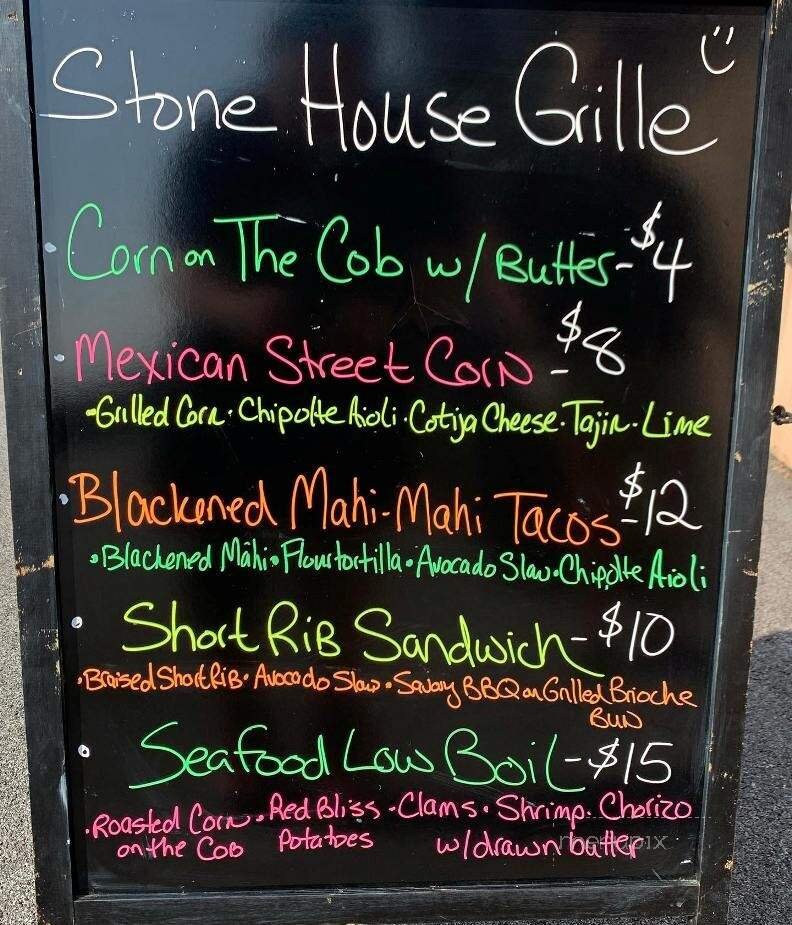 Stone House Grille
Corn on The Cob w/ Butter - $4
Mexican Street Corn - $8
-Grilled Corn · Chipotle Aioli · Cotija Cheese · Tajin · Lime
Blackened Mahi-Mahi Tacos - $12
• Blackened Mahi • Flour tortilla • Avocado Slaw • Chipolte Aioli
Short Rib Sandwich - $10
• Braised Short Rib • Avocado Slaw • Savory BBQ on Grilled Brioche
Bun
Seafood Low Boil - $15
• Roasted Corn • Red Bliss - Clams • Shrimp · Chorizo
on the Cob Potatoes w/drawn butter
menupix